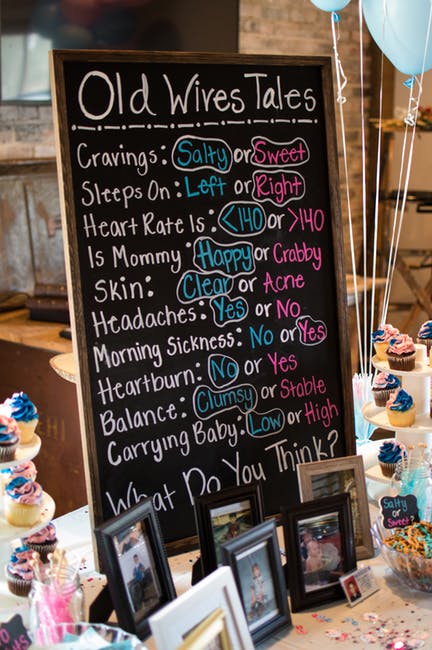 Old Wires Tales
Cravings: Salty or Sweet
Sleeps On: Left or Right
Heart Rate Is: <140 or >140
Is Mommy: Happy or Crabby
Skin: Clear or Acne
Headaches: Yes or No
Morning Sickness: No or Yes
Heartburn: No or Yes
Balance: Clumsy or Stable
Carrying Baby: Low or High
What Do You Think?
Salty or
Sweet?